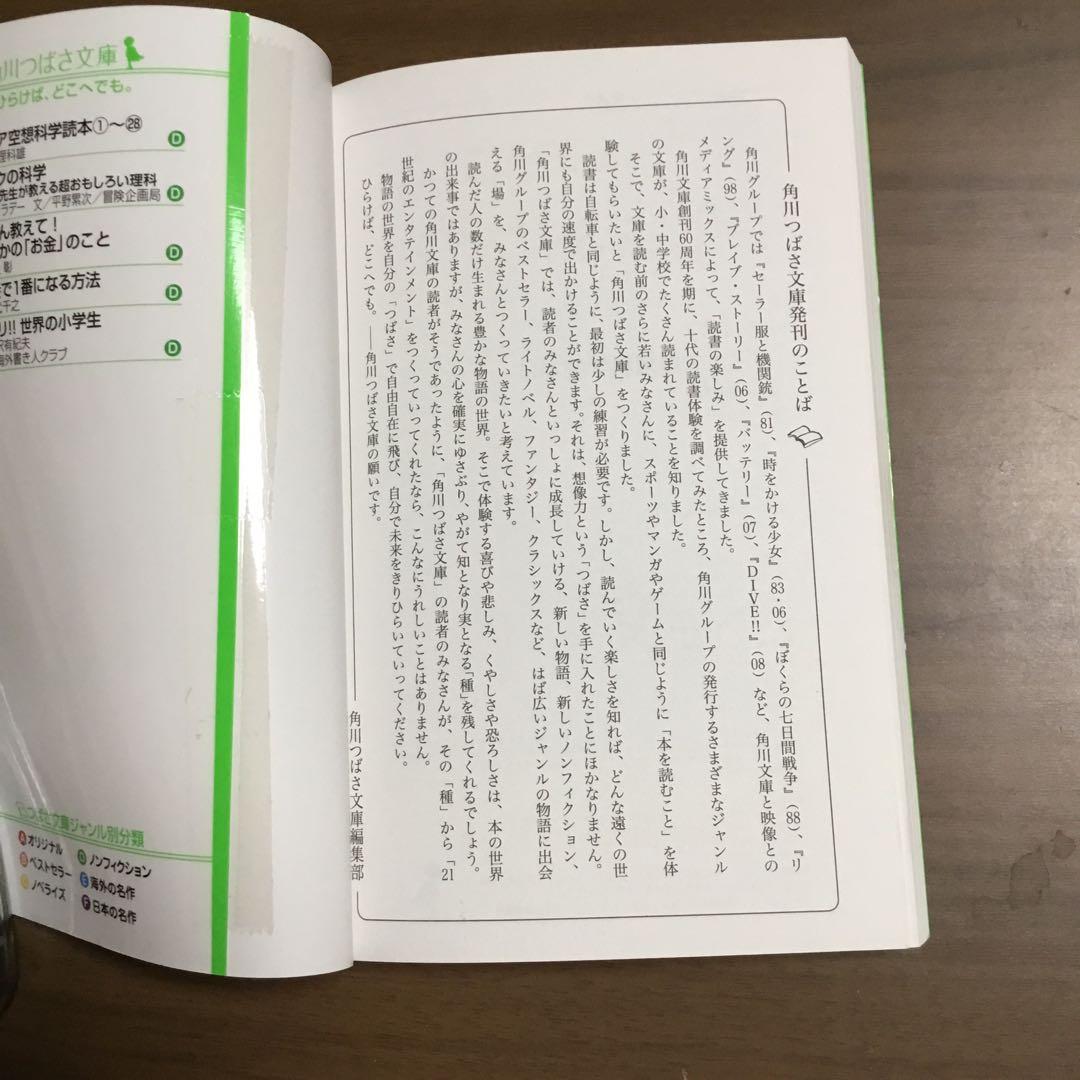 角川つばさ文庫発刊のことば
角川グループでは『セーラー服と機関銃』(81)、『時をかける少女』(83・06)、『ぼくらの七日間戦争』(88)、『リ
ング』(98)、『ブレイブ・ストーリー』(06)、『バッテリー』(07)、『DIVE!!』(08)など、角川文庫と映像との
メディアミックスによって、「読書の楽しみ」を提供してきました。
角川文庫創刊60周年を期に、十代の読書体験を調べてみたところ、角川グループの発行するさまざまなジャンル
の文庫が、小・中学校でたくさん読まれていることを知りました。
そこで、文庫を読む前のさらに若いみなさんに、スポーツやマンガやゲームと同じように「本を読むこと」を体
験してもらいたいと「角川つばさ文庫」をつくりました。
読書は自転車と同じように、最初は少しの練習が必要です。しかし、読んでいく楽しさを知れば、どんな遠くの世
界にも自分の速度で出かけることができます。それは、想像力という「つばさ」を手に入れたことにほかなりません。
「角川つばさ文庫」では、読者のみなさんといっしょに成長していける、新しい物語、新しいノンフィクション、
角川グループのベストセラー、ライトノベル、ファンタジー、クラシックスなど、はば広いジャンルの物語に出会
える「場」を、みなさんとつくっていきたいと考えています。
読んだ人の数だけ生まれる豊かな物語の世界。そこで体験する喜びや悲しみ、くやしさや恐ろしさは、本の世界
の出来事ではありますが、みなさんの心を確実にゆさぶり、やがて知となり実となる「種」を残してくれるでしょう。
かつての角川文庫の読者がそうであったように、「角川つばさ文庫」の読者のみなさんが、その「種」から「21
世紀のエンタテインメント」をつくっていってくれたなら、こんなにうれしいことはありません。
物語の世界を自分の「つばさ」で自由自在に飛び、自分で未来をきりひらいていってください。
ひらけば、どこへでも。――角川つばさ文庫の願いです。
角川つばさ文庫編集部
川つばさ文庫
ひらけば、どこへでも。
ア空想科学読本①〜㉘ D
理科雄
ケの科学
先生が教える超おもしろい理科 D
ラデー 文/平野累次/冒険企画局
ん教えて!
かの「お金」のこと D
彰
で1番になる方法 D
千之
リ!! 世界の小学生
沢有紀夫 D
海外書き人クラブ
つばさ文庫ジャンル別分類
A オリジナル D ノンフィクション
B ベストセラー E 海外の名作
C ノベライズ F 日本の名作